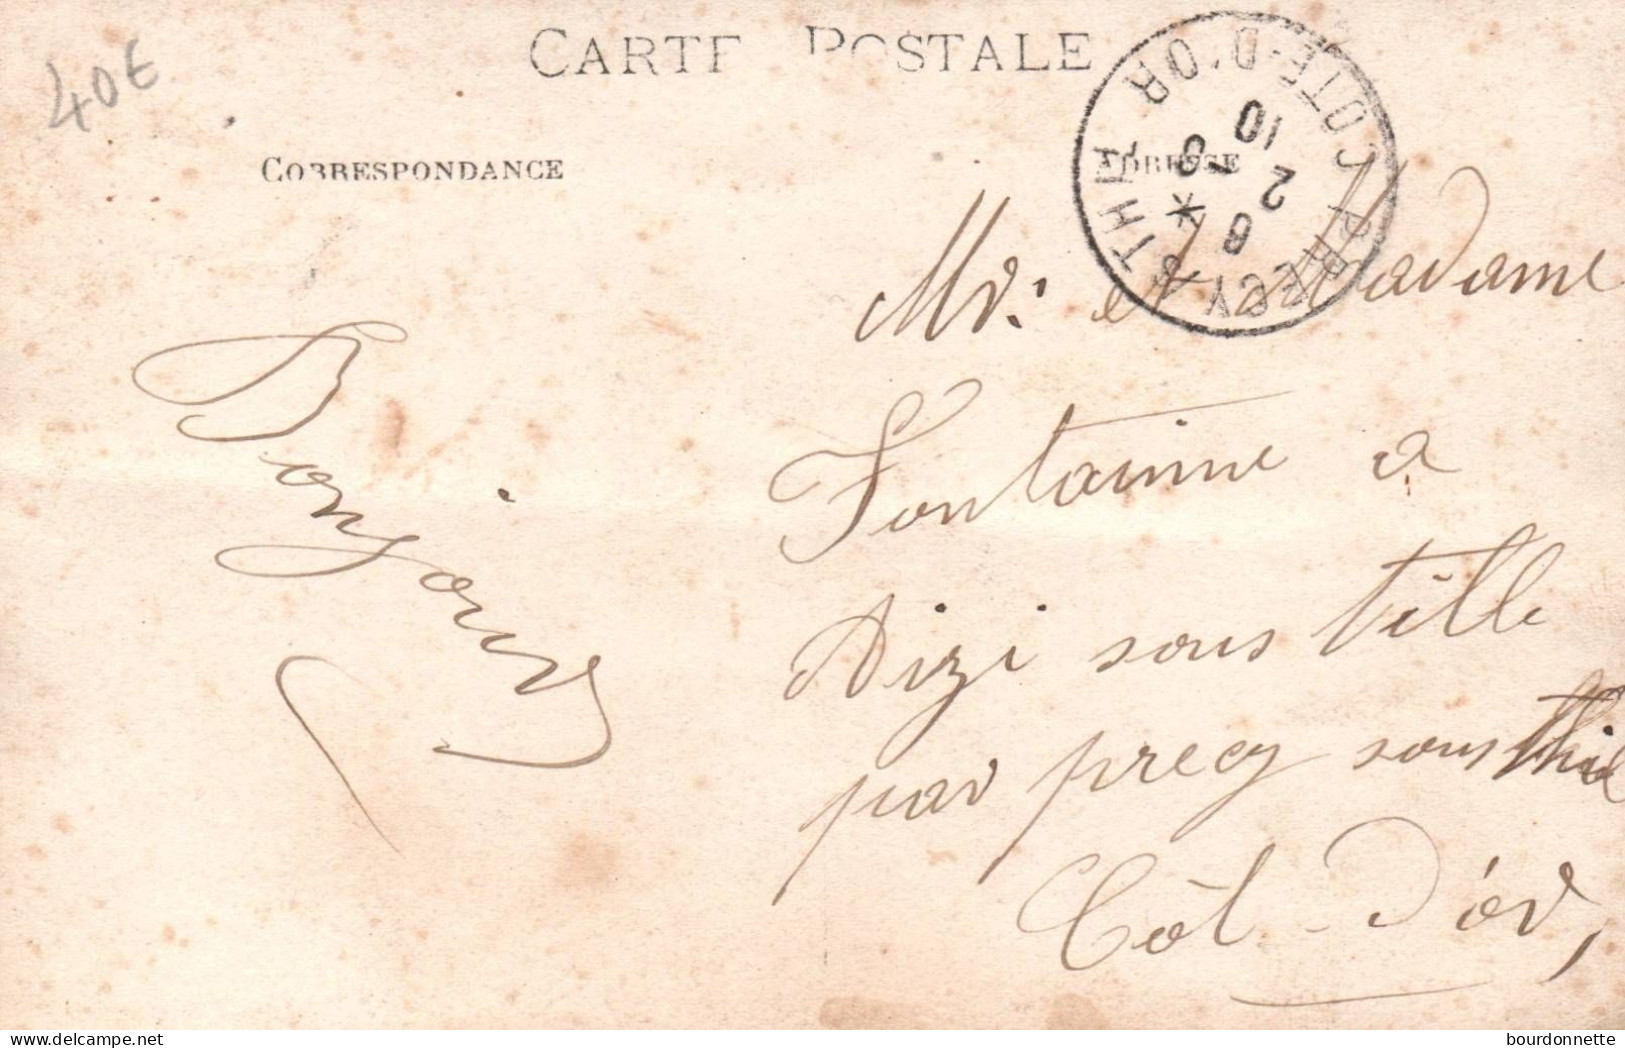 40€
CARTE POSTALE
CORRESPONDANCE
ADRESSE
PRECY-S-THIL
COTE-D'OR
8 *
2 -8
10
Mr. et Madame
Fontaine a
Aizi sous tille
par precy sous thil
Côt. d'or,
Bonjour
bourdonnette